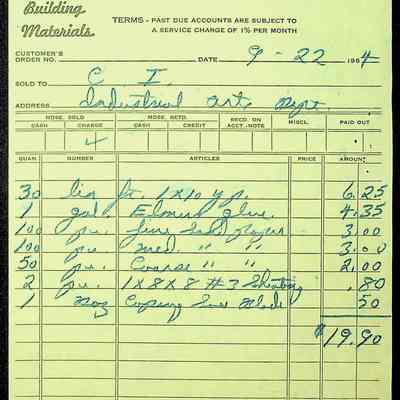 Building
Materials
TERMS - PAST DUE ACCOUNTS ARE SUBJECT TO
A SERVICE CHARGE OF 1% PER MONTH
CUSTOMER'S
ORDER NO. DATE 9-22 1964
SOLD TO C I
ADDRESS Industrial Arts Dept
MDSE. SOLD MDSE. RETD. RECD. ON ACCT.-NOTE MISCL. PAID OUT
CASH CHARGE CASH CREDIT
QUAN. NUMBER ARTICLES PRICE AMOUNT
30 lin ft. 1X10 y.p. 6.25
1 gal. Elmers glue. 4.35
100 pc. fine Sand paper 3.00
100 pc. med. " " 3.00
50 pc. Coarse " " 2.00
2 pc. 1X8X8 #3 Sheating .80
1 Doz Coping Saw Blade 50
$19.90